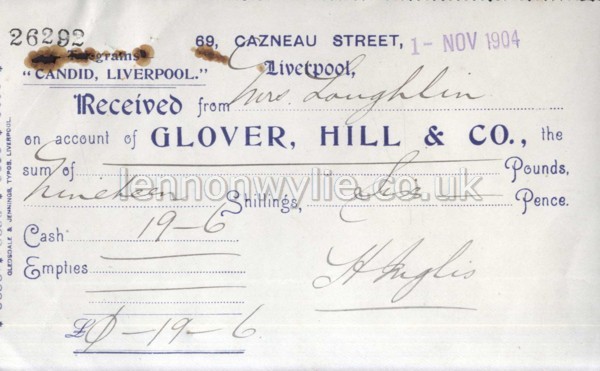 26292
69, CAZNEAU STREET, 1- NOV 1904
Telegrams
"CANDID, LIVERPOOL." Liverpool,
Received from Mrs. Loughlin
on account of GLOVER, HILL & CO., the
sum of Pounds,
lennonwylie.co.uk
Nineteen Shillings, Six Pence.
Cash 19-6
Empties
H Inglis
£0-19-6
GLEDSDALE & JENNINGS, TYPOS, LIVERPOOL.